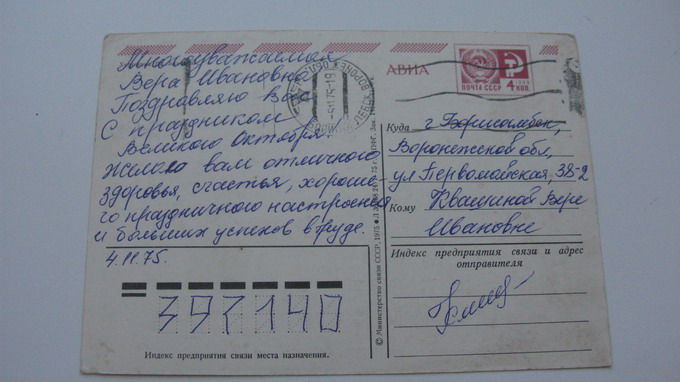 Многоуважаемая
Вера Ивановна
Поздравляю Вас
С праздником
Великого Октября!
Желаю вам отличного
здоровья, счастья, хороше-
го праздничного настроения
и больших успехов в труде.
4.11.75.
АВИА
ПОЧТА СССР
4 КОП.
Куда г. Борисоглебск,
Воронежской обл,
ул Первомайская 38-2
Кому Квашиной Вере
Ивановне
Индекс предприятия связи и адрес
отправителя
397140
Индекс предприятия связи места назначения.
© Министерство связи СССР, 1975